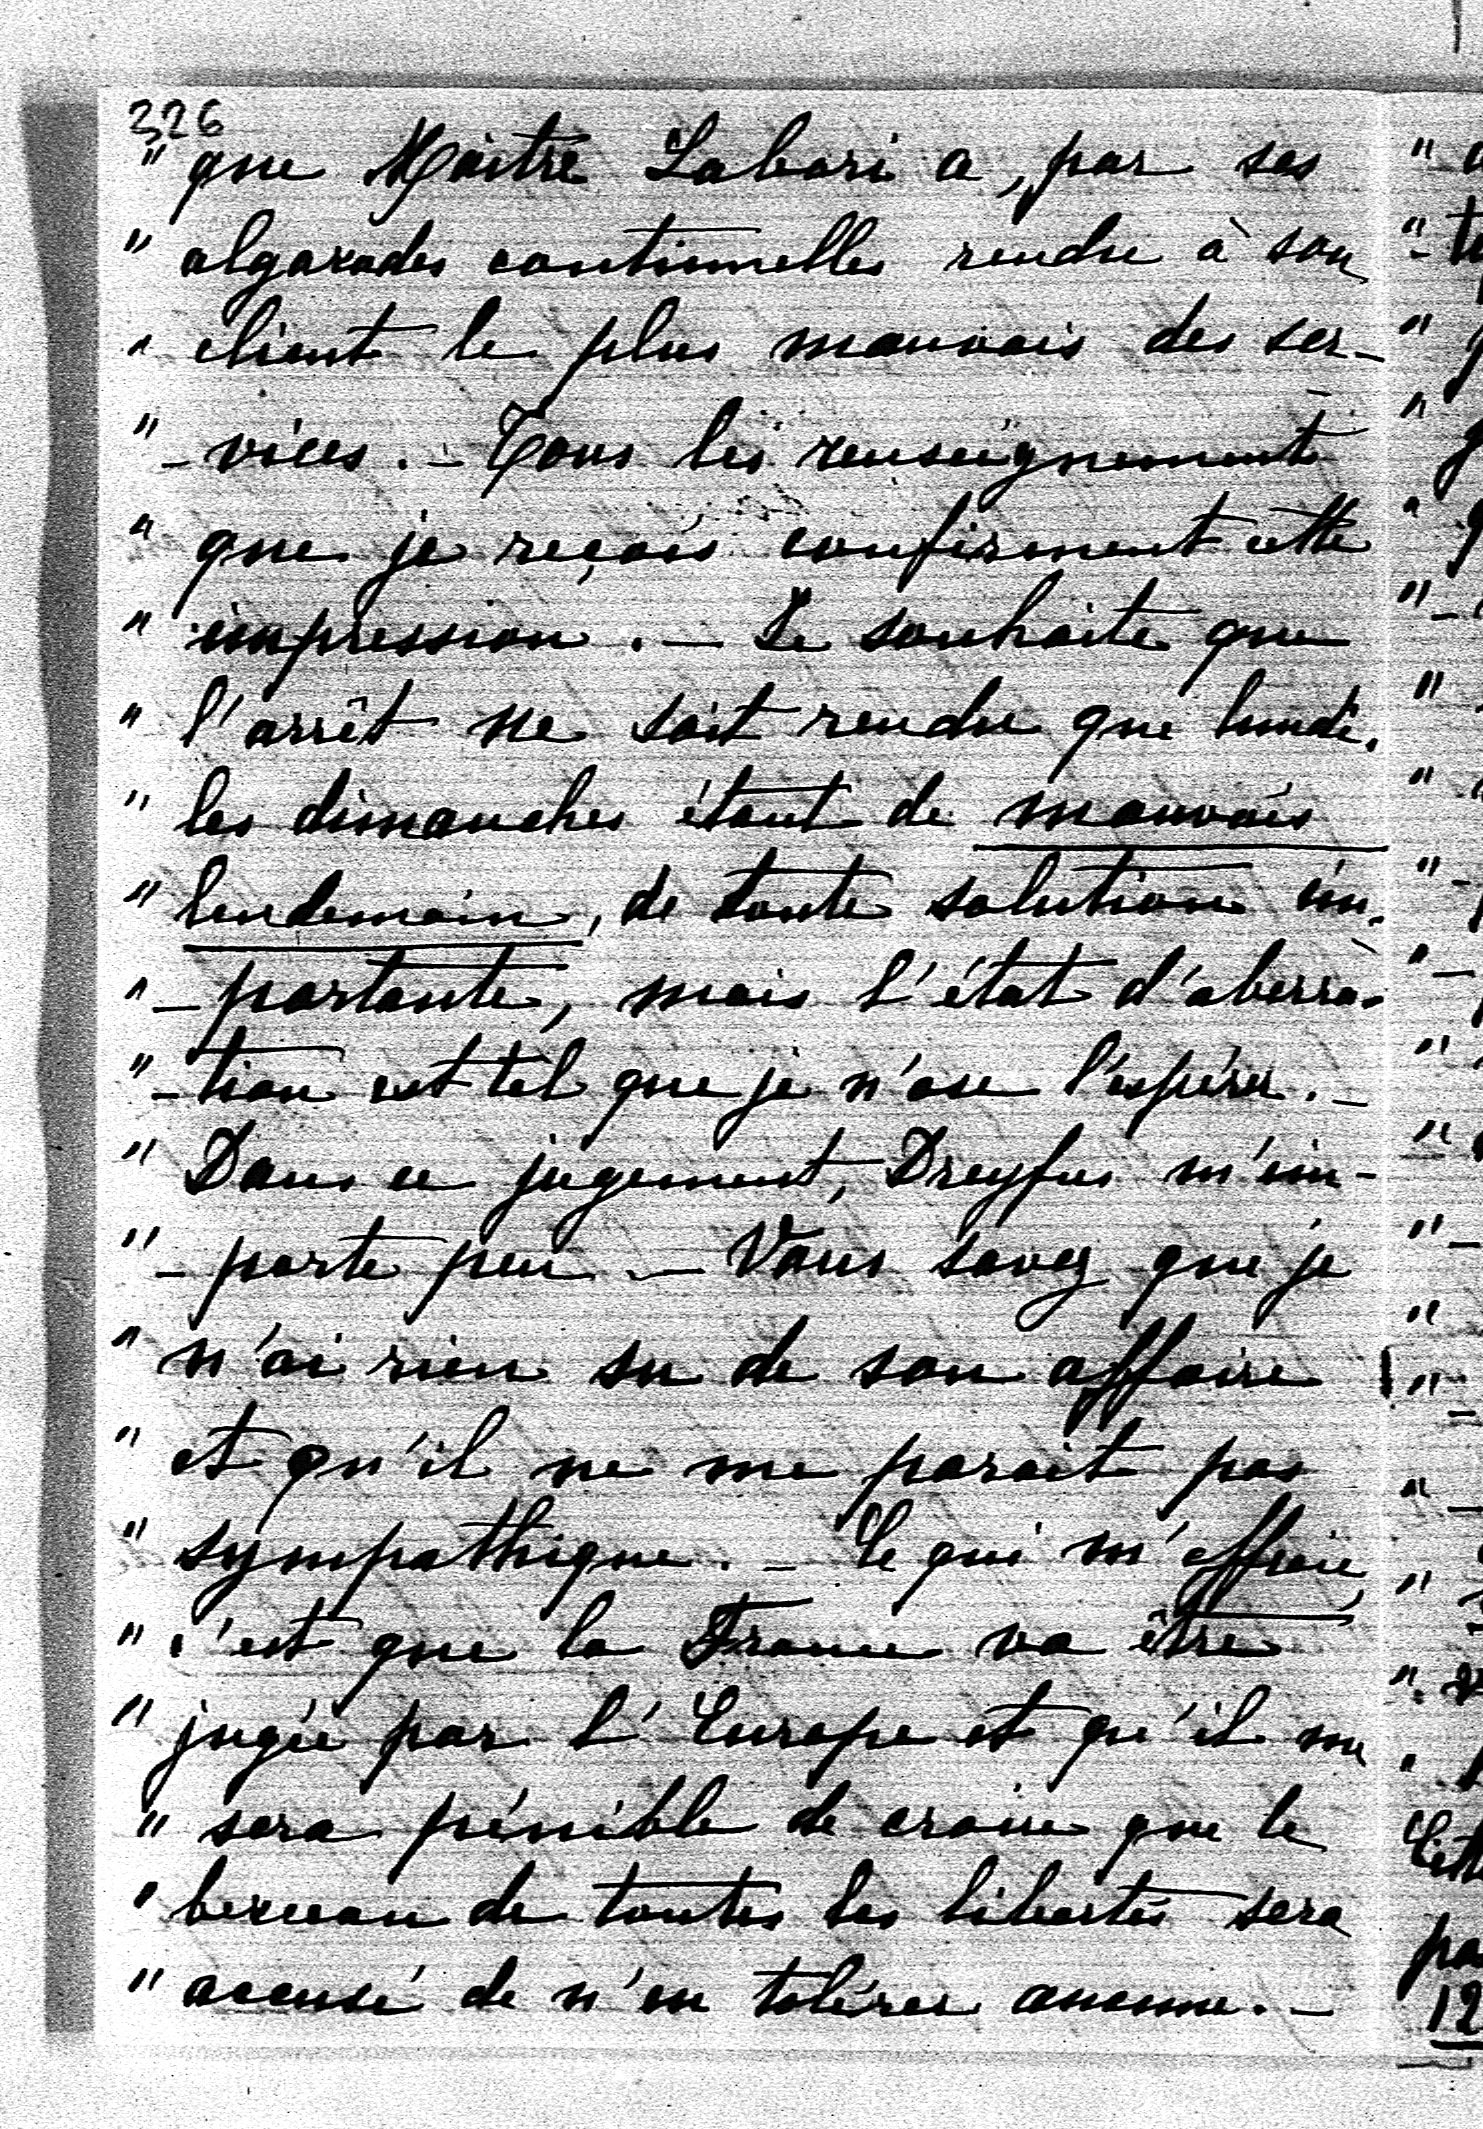 326
" que Maître Labori a, par ses
" algarades continuelles rendu à son
" client le plus mauvais des ser-
" -vices. - Tous les renseignements
" que je reçois confirment cette
" impression. - Je souhaite que
" l'arrêt ne soit rendu que lundi.
" les dimanches étant de mauvais
" lendemain, de toute solution im-
" -portante, mais l'état d'aberra-
" -tion est tel que je n'ose l'espérer. -
" Dans ce jugement, Dreyfus m'im-
" -porte peu. - Vous savez que je
" n'ai rien su de son affaire
" et qu'il ne me parait pas
" sympathique. - Ce qui m'effraie,
" c'est que la France va être
" jugée par l'Europe et qu'il me
" sera pénible de croire que le
" berceau de toutes les libertés sera
" accusé de n'en tolérer aucune. -